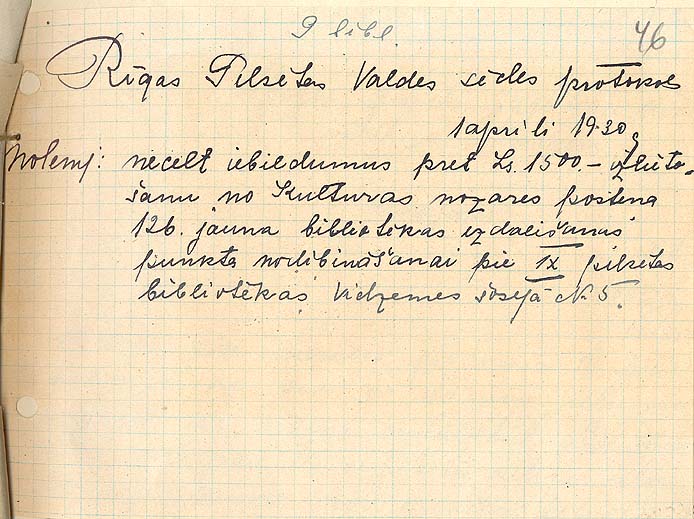 9 bibl.
46
Rīgas Pilsētas Valdes sēdes protokols
1 aprīlī 1930.
Nolemj: necelt iebildumus pret Ls. 1500.– izlieto-
šanu no Kultūras nozares posteņa
126. jauna bibliotēkas izdalīšanas
punkta nodibināšanai pie IX pilsētas
bibliotēkas Vidzemes šosejā № 5.